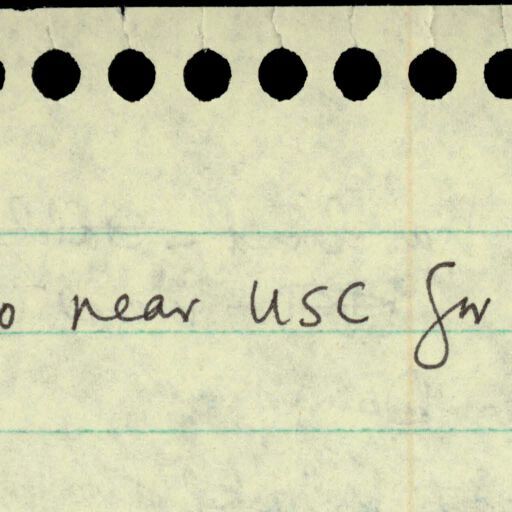 o near USC for